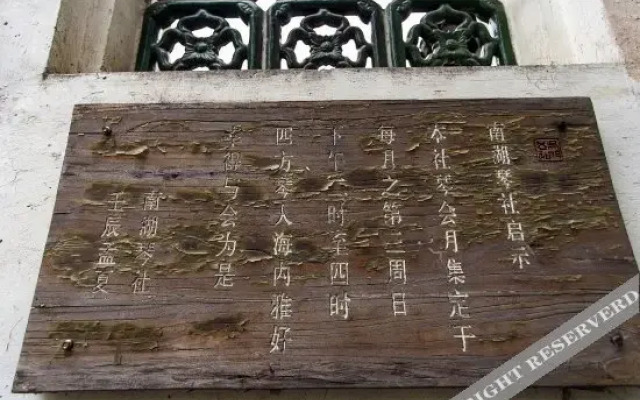 南湖琴社启示
本社琴会月集定于
每月之第三周日
下午二时至四时
四方琴人海内雅好
幸得与会为是
南湖琴社
壬辰孟夏
RIGHT RESERVERD